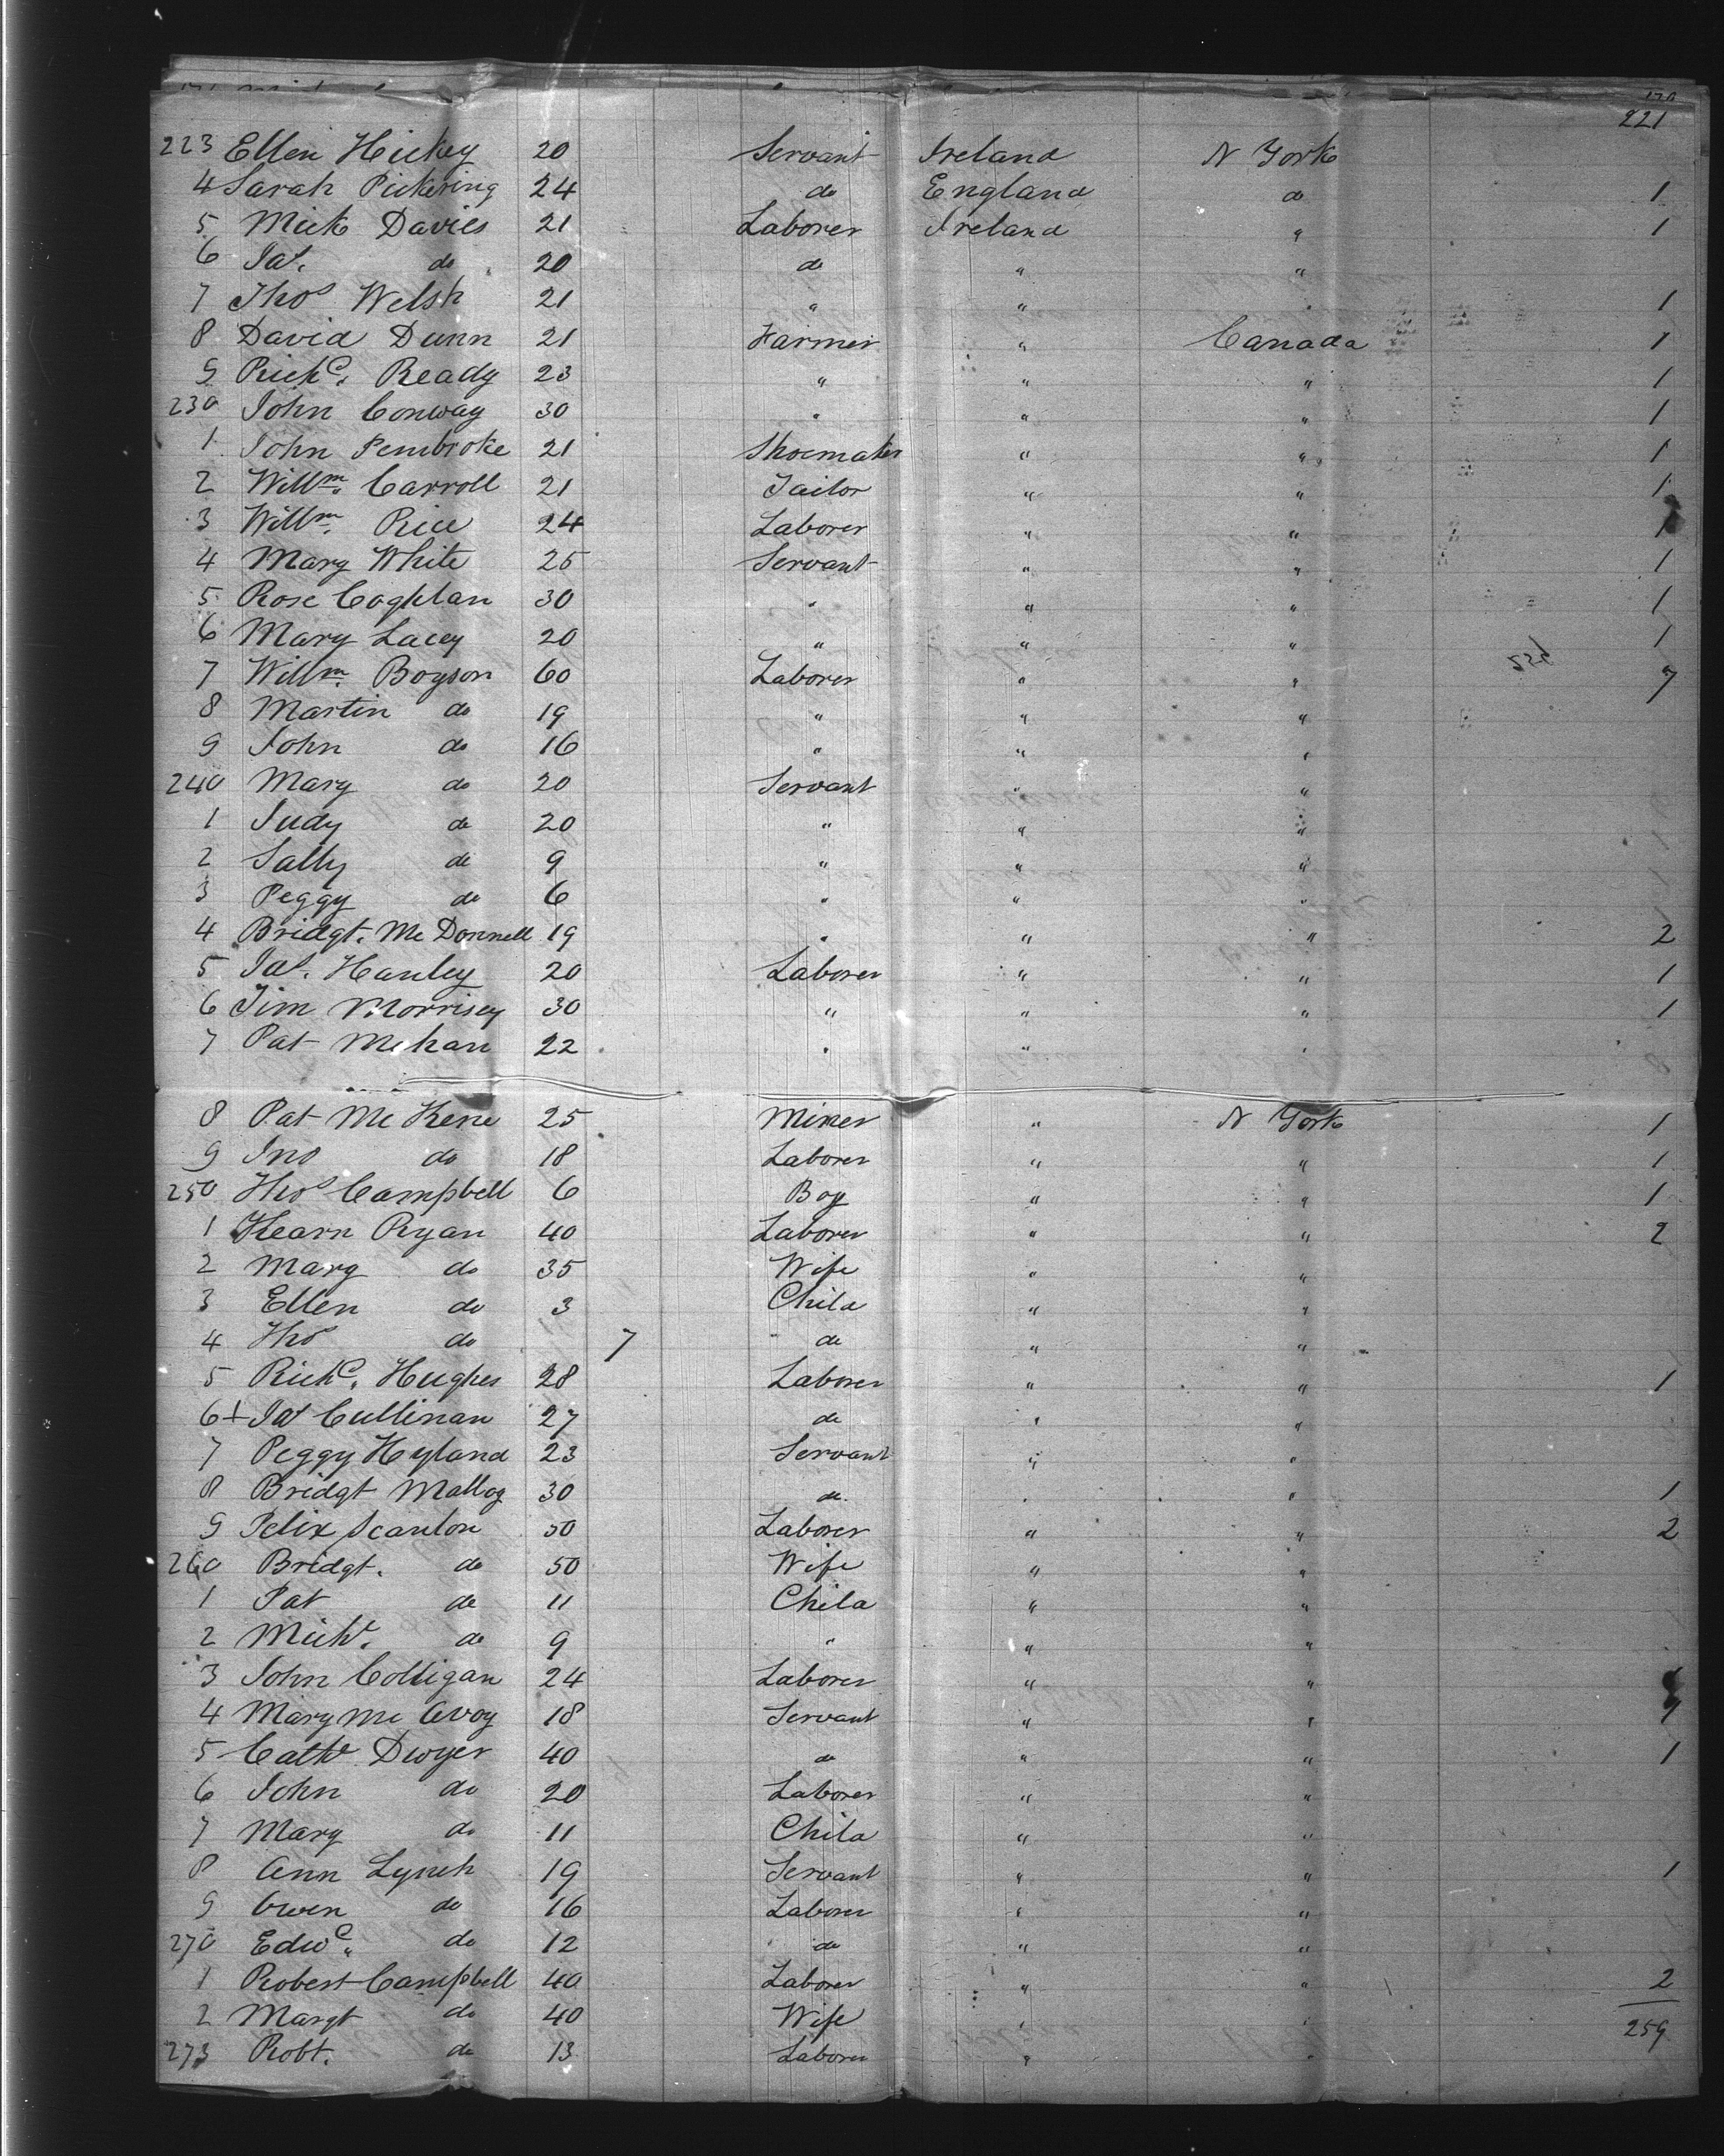 221
223 Ellen Hickey 20 Servant Ireland N York
4 Sarah Pickering 24 do England do 1
5 Mick Davies 21 Laborer Ireland " 1
6 Pat. do 20 do " "
7 Thos Welsh 21 " " " 1
8 David Dunn 21 Farmer " Canada 1
9 Richd. Ready 23 " " " 1
230 John Conway 30 " " " 1
1 John Pembroke 21 Shoemaker " " 1
2 Willm. Carroll 21 Tailor " " 1
3 Willm. Rice 24 Laborer " " 1
4 Mary White 25 Servant " " 1
5 Rose Coghlan 30 " " " 1
6 Mary Lacey 20 " " " 1
7 Willm. Boyson 60 Laborer " " 7
8 Martin do 19 " " "
9 John do 16 " " "
240 Mary do 20 Servant " "
1 Judy do 20 " " "
2 Sally do 9 " " "
3 Peggy do 6 " " "
4 Bridgt. Mc Donnell 19 " " " 2
5 Pat. Hanley 20 Laborer " " 1
6 Tim Morrisey 30 " " " 1
7 Pat Mehan 22 " " "
8 Pat Mc Kene 25 Miner " N York 1
9 Jno do 18 Laborer " " 1
250 Thos Campbell 6 Boy " " 1
1 Kearn Ryan 40 Laborer " " 2
2 Mary do 35 Wife " "
3 Ellen do 3 Child " "
4 Thos do 7 do " "
5 Richd. Hughes 28 Laborer " " 1
6 + Pat Cullinan 27 do " "
7 Peggy Hyland 23 Servant " "
8 Bridgt Malloy 30 do " " 1
9 Felix Scanlon 50 Laborer " " 2
260 Bridgt. do 50 Wife " "
1 Pat do 11 Child " "
2 Michl. do 9 " " "
3 John Colligan 24 Laborer " "
4 Mary Mc Avoy 18 Servant " "
5 Cathe Dwyer 40 do " " 1
6 John do 20 Laborer " "
7 Mary do 11 Child " "
8 Ann Lynch 19 Servant " " 1
9 Owen do 16 Laborer " "
270 Edwd. do 12 do " "
1 Robert Campbell 40 Laborer " " 2
2 Margt do 40 Wife " "
259
273 Robt. do 13 Laborer " "